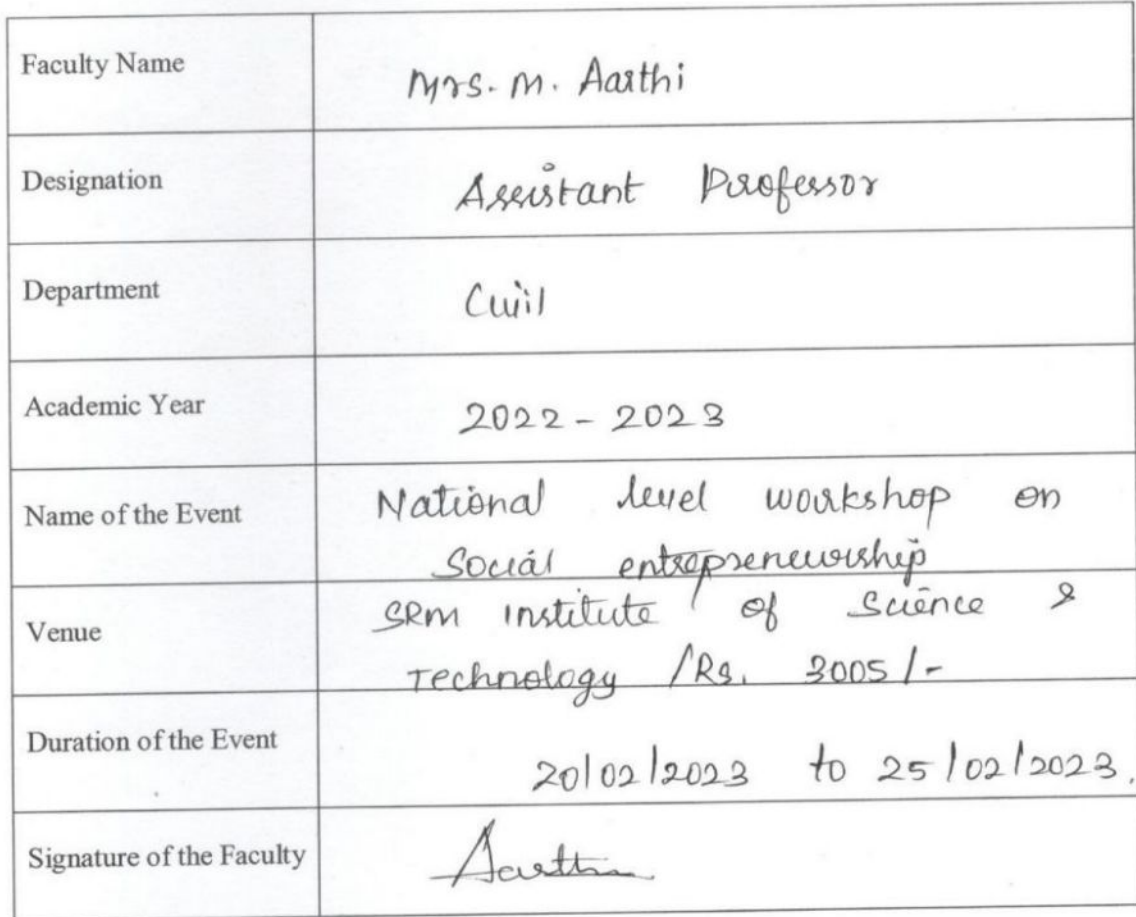 Faculty Name Mrs. M. Aarthi
Designation Assistant Professor
Department Civil
Academic Year 2022 - 2023
Name of the Event National level workshop on
Social entrepreneurship
Venue SRM institute of Science &
Technology /Rs. 3005/-
Duration of the Event 20/02/2023 to 25/02/2023.
Signature of the Faculty Aarthi